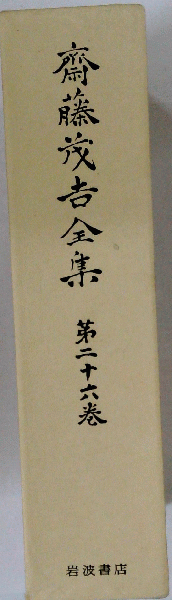 齋藤茂吉全集
第二十六巻
岩波書店